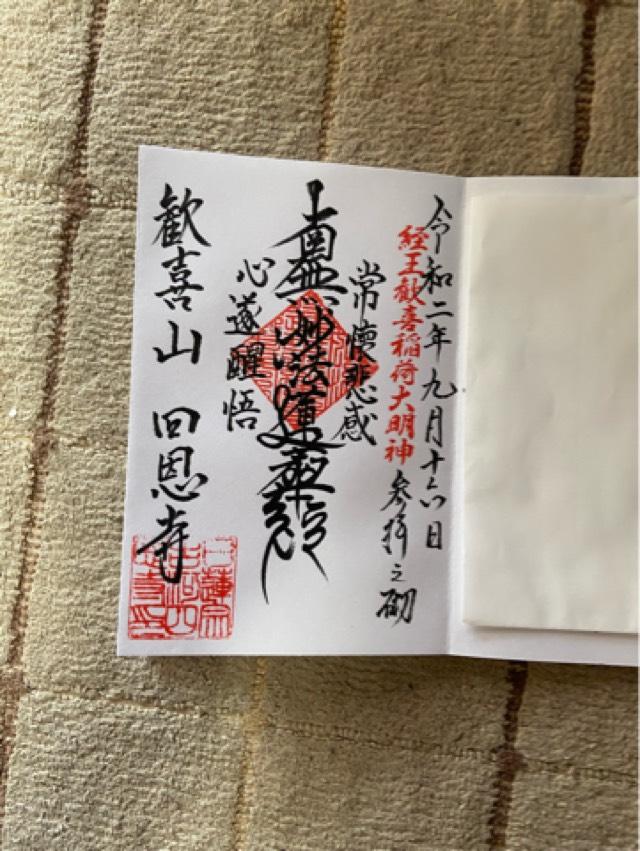 令和二年九月十六日
経王歓喜稲荷大明神 参拝之砌
常懐悲感
南無妙法蓮華経
心遂醒悟
歓喜山 回恩寺